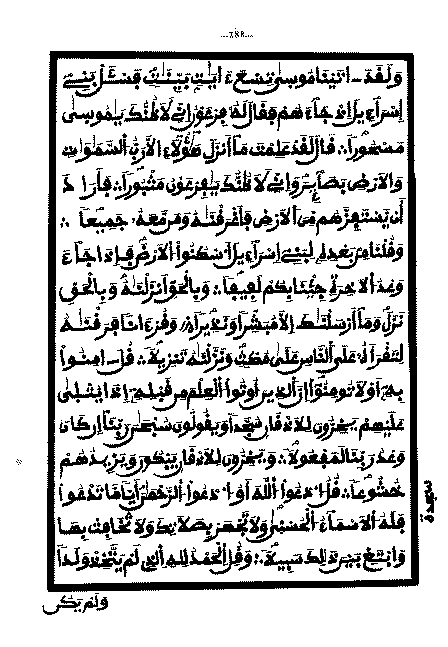 ...288...
ولقد ـ اتينا موسى تسع ءايت بينت فسئل بنے
إسراءيل إذ جاءهم فقال له فرعون إنے لأظنك يموسى
مسحورا ∴ قال لقد علمت ما أنزل هؤلاء الا رب السموت
والارض بصاير وإنے لأظنك يفرعون مثبورا ∴ فأراد
أن يستفزهم من الارض فأغرقنه ومن معه جميعا ∴
وقلنا من بعده لبنے إسراءيل اسكنوا الارض فإذا جاء
وعد الاخرة جئنا بكم لفيفا ∴ وبالحق أنزلنه وبالحق
نزل وما أرسلنك إلا مبشرا ونذيرا ∴ وقرءانا فرقنه
لتقرأه على الناس على مكث ونزلنه تنزيلا ∴ قل ـ امنوا
به أو لا تومنوا إن الذين أوتوا العلم من قبله إذا يتلى
عليهم يخرون للاذقان سجدا ويقولون سبحن ربنا إن كان
وعد ربنا لمفعولا ∴ ويخرون للاذقان يبكون ويزيدهم
خشوعا ∴ قل ادعوا الله أو ادعوا الرحمن أيا ما تدعوا
فله الاسماء الحسنى ولا تجهر بصلاتك ولا تخافت بها
وابتغ بين ذلك سبيلا ∴ وقل الحمد لله الذے لم يتخذ ولدا
سجدة
ولم يكن